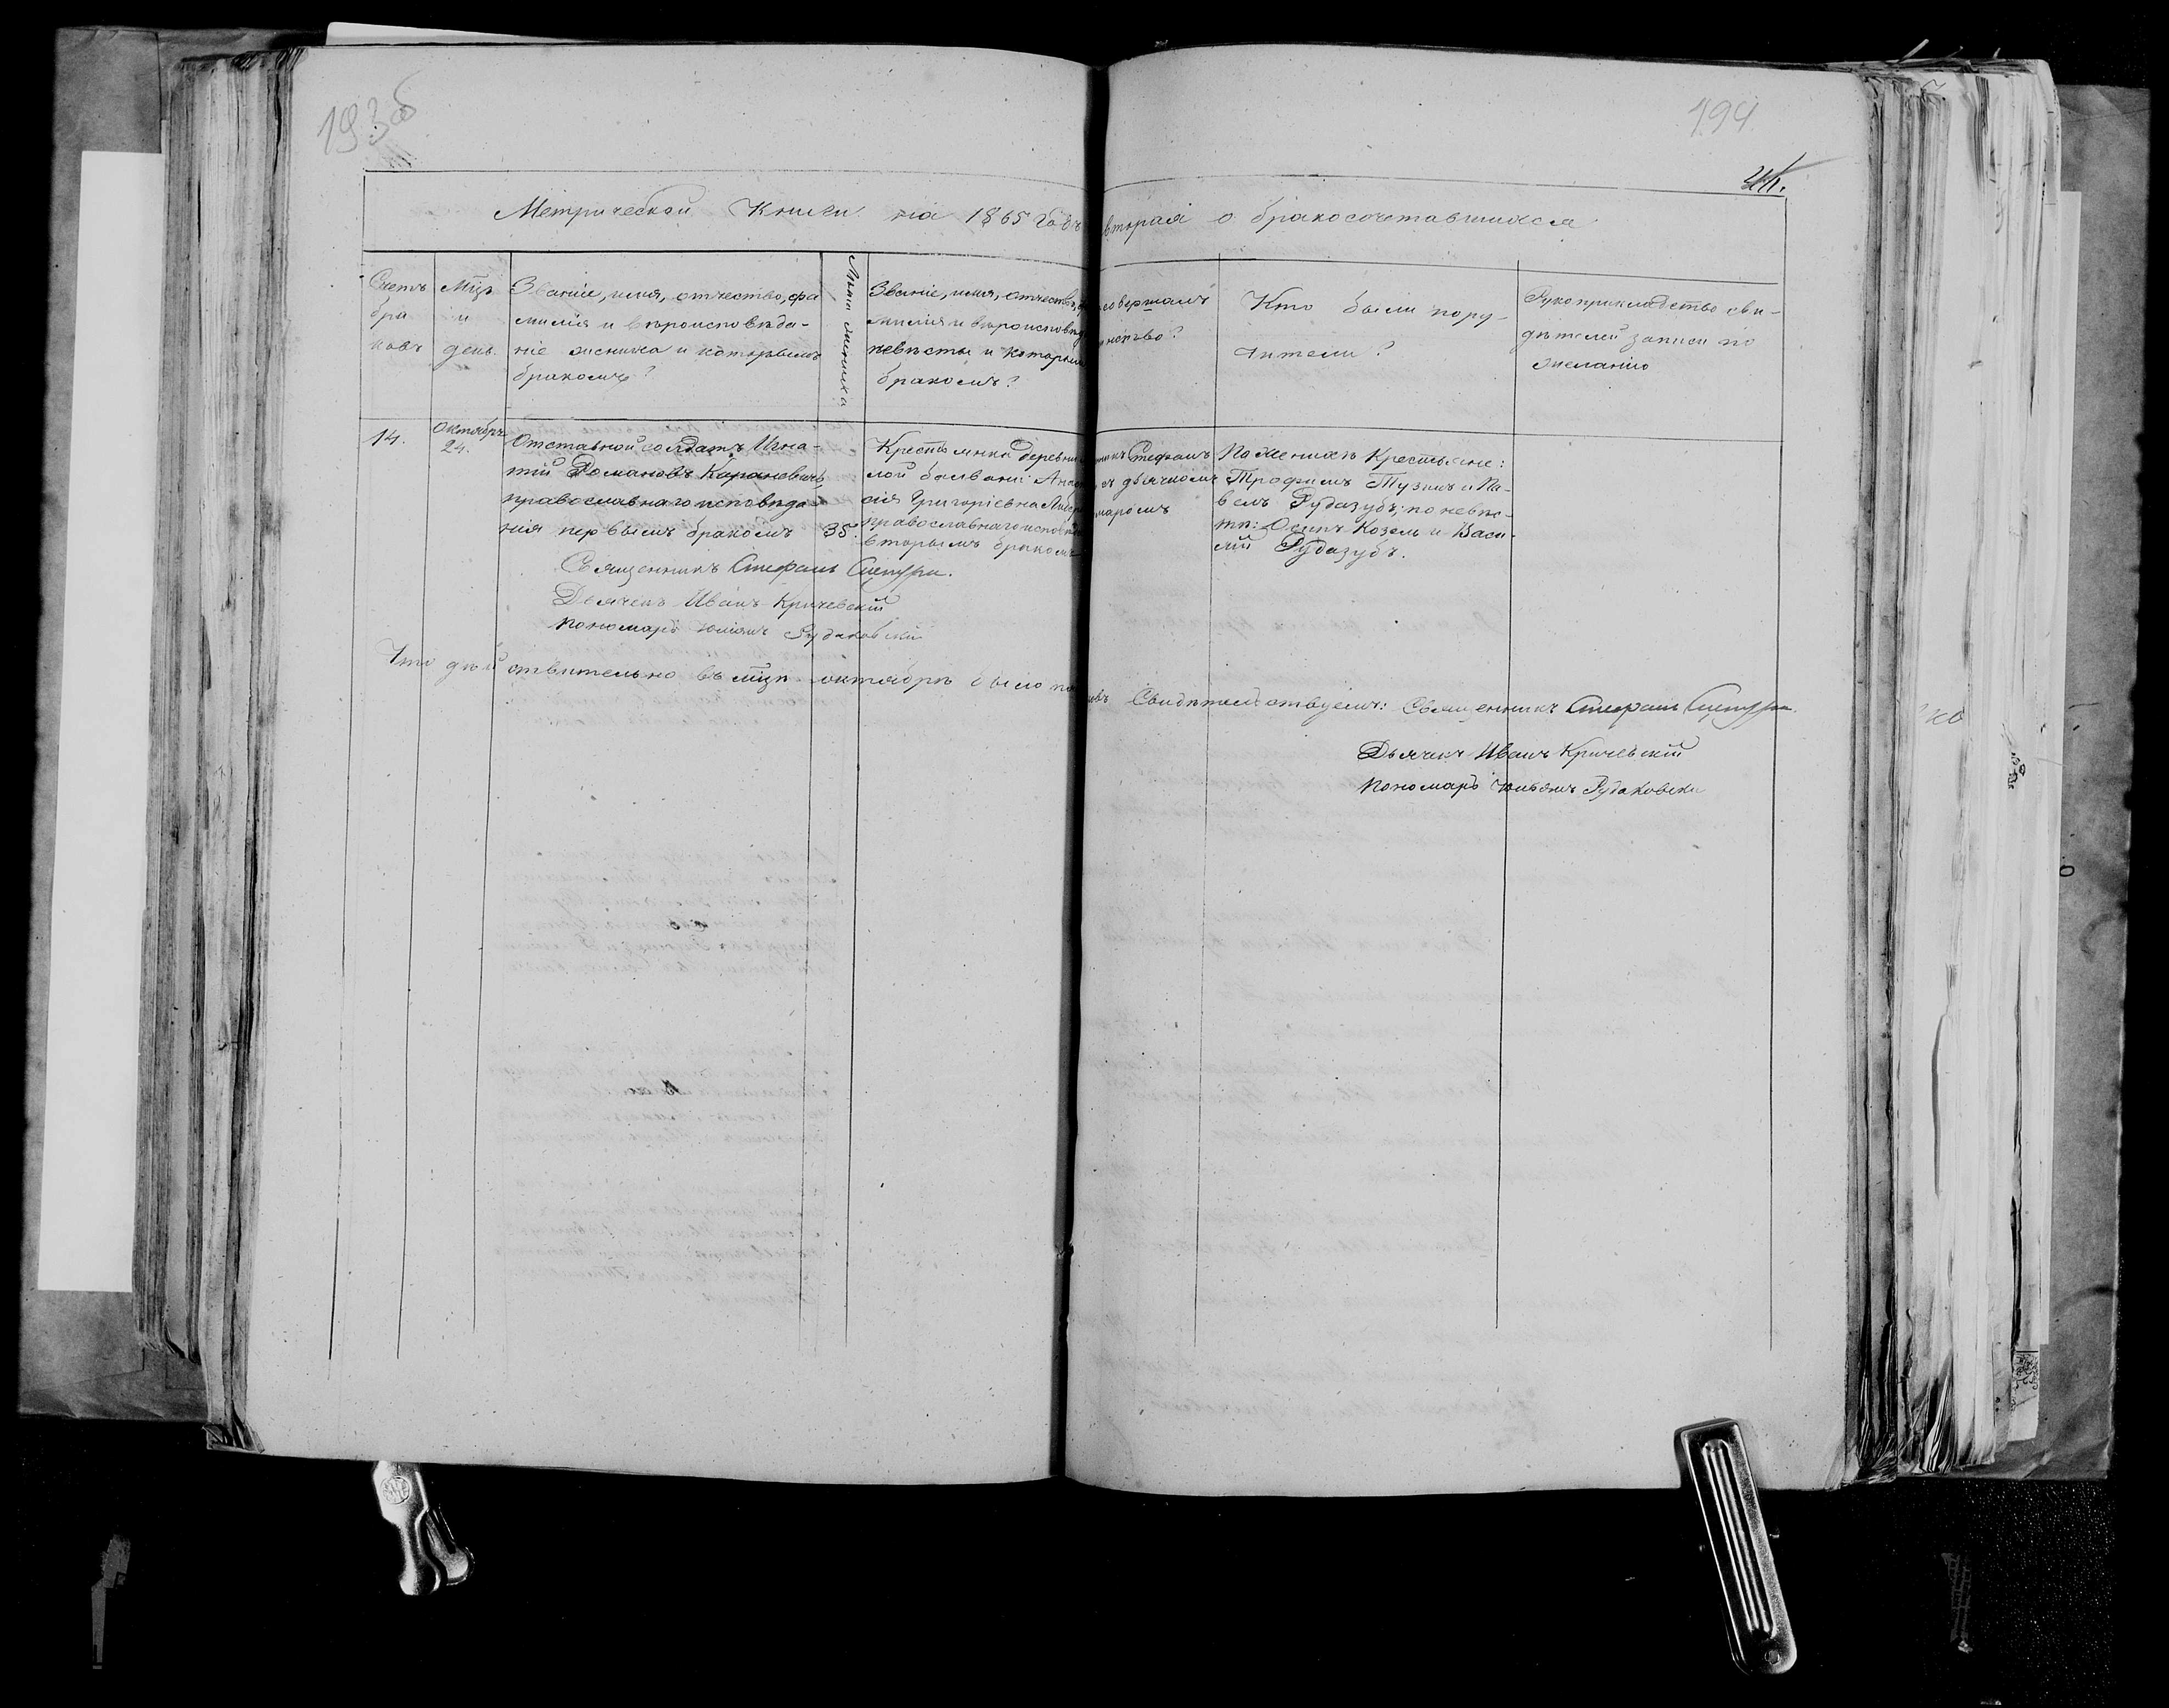 193 об
194
Метрической Книги на 1865 годъ
вторая о бракосочетавшихся
Счетъ бра ковъ
Мцъ и день.
Званіе, имя, отчество, фа
милія и вѣроисповѣда-
ніе жениха и которымъ
бракомъ?
Лѣта жениха
Званіе, имя, отчество,
милія и вѣроисповѣд
невѣсты и которым
бракомъ?
совершалъ
инство?
Кто были пору-
чители?
Рукоприкладство сви-
дѣтелей записи по
желанію
14.
Октябрь
24.
Отставной солдатъ Игна-
тій Романовъ Караневичъ,
православнаго исповѣда-
нія первымъ бракомъ
35.
Крестьянка деревни
лой Болвани
Григоріевна
православнаго исповѣд
вторымъ бракомъ
никъ Стефанъ
съ дьячкомъ
марёмъ
По женихѣ Крестьяне:
Трофимъ Тузикъ и Па-
велъ Рудазубъ; по невѣс-
тѣ: Осипъ Козелъ и Васи-
лій Рудазубъ.
Священникъ Стефанъ
Дьячекъ Иванъ Кричевскій
Пономарь Юліянъ Рудаковскій
Что дѣйствительно въ мцѣ октябрѣ было
Свидѣтельствуемъ: Священникъ Стефанъ
Дьячекъ Иванъ Кричевскій
Пономарь Юльянъ Рудаковски